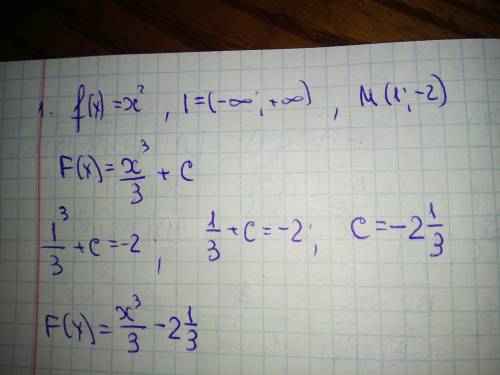 1. f(x) = x², I = (-∞; +∞), M(1; -2)
F(x) = x³/3 + C
1³/3 + C = -2; 1/3 + C = -2; C = -2 1/3
F(x) = x³/3 - 2 1/3